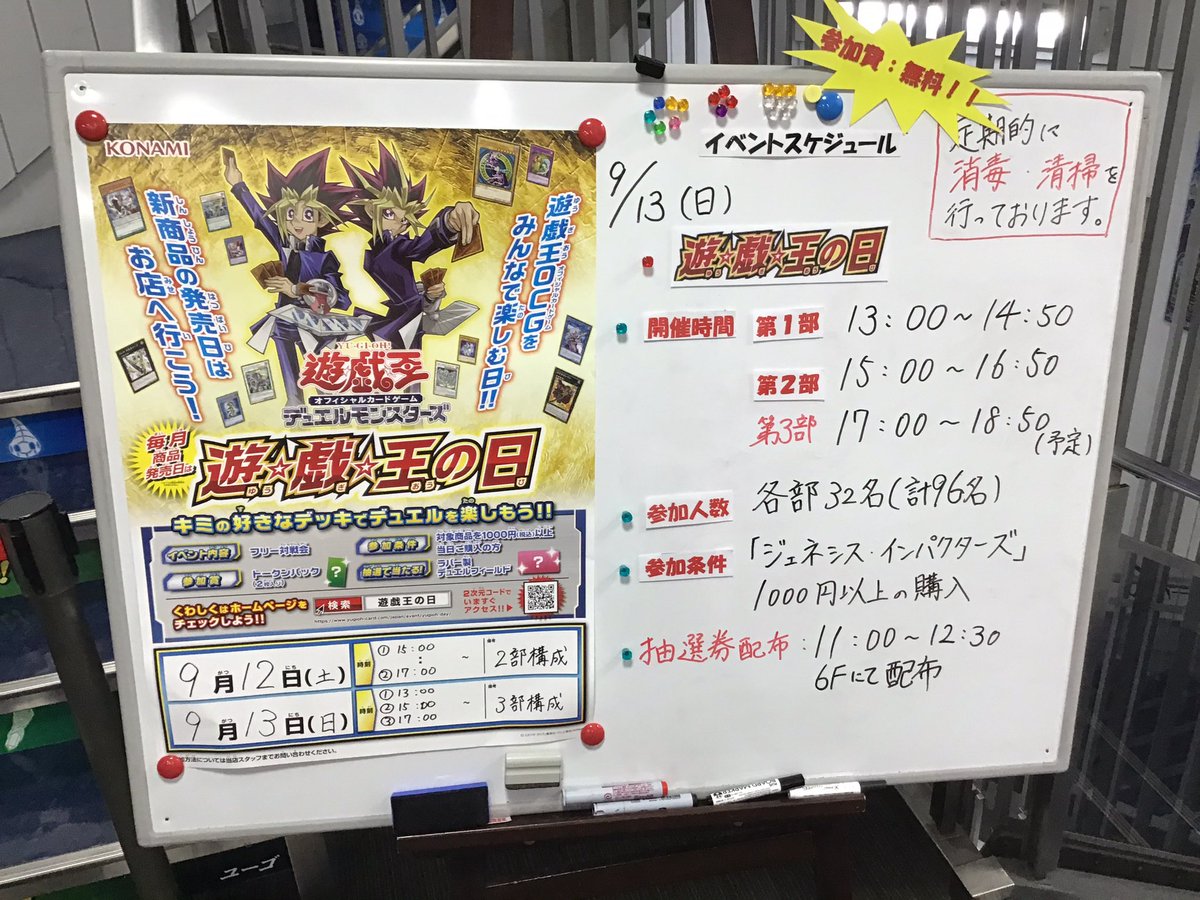 KONAMI
遊戯王OCGを
みんなで楽しむ日!!
新商品の発売日は
お店へ行こう!
YU-GI-OH!
遊戯王
オフィシャルカードゲーム
デュエルモンスターズ
毎月
商品
発売日は
遊☆戯☆王の日
ゆう ぎ おう ひ
キミの好きなデッキでデュエルを楽しもう!!
イベント内容 フリー対戦会
参加賞 トークンパック
(2枚入り)
参加条件 対象商品を1000円(税込)以上
当日ご購入の方
抽選で当たる! ラバー製
デュエルフィールド
くわしくはホームページを
チェックしよう!!
検索 遊戯王の日
https://www.yugioh-card.com/japan/event/yugioh-day/
2次元コードで
いますぐ
アクセス!!
9月12日(土) 時刻 ①15:00 ~ 備考 2部構成
:
②17:00
9月13日(日) 時刻 ①13:00 ~ 備考 3部構成
②15:00
③17:00
方法については当店スタッフまでお問い合わせください。
参加費:無料!!
イベントスケジュール
定期的に
消毒・清掃を
行っております。
9/13(日)
遊☆戯☆王の日
ゆう ぎ おう ひ
開催時間 第1部 13:00~14:50
第2部 15:00~16:50
第3部 17:00~18:50
(予定)
参加人数 各部32名(計96名)
参加条件 「ジェネシス・インパクターズ」
1000円以上の購入
抽選券配布:11:00~12:30
6Fにて配布
ユーゴ